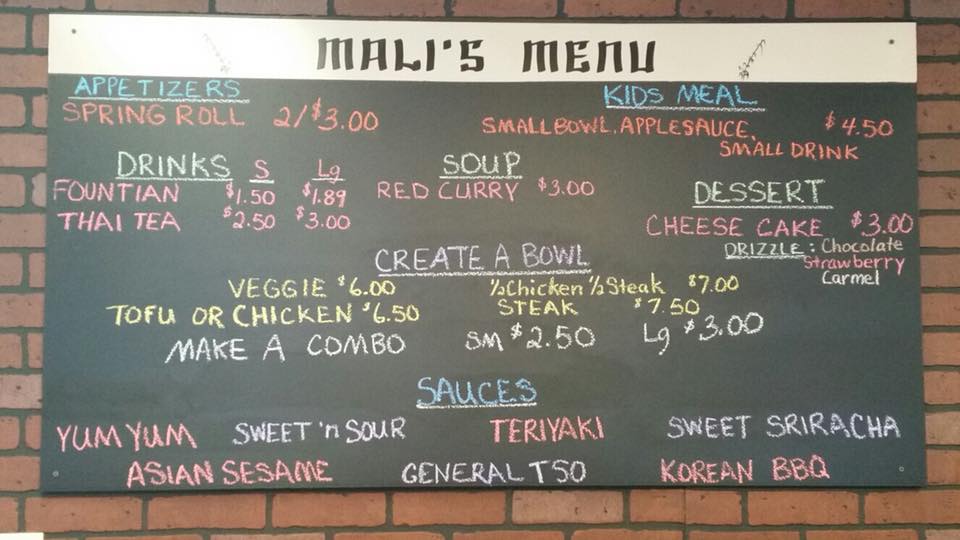 MALI'S MENU
APPETIZERS
SPRING ROLL 2/$3.00
KIDS MEAL
SMALL BOWL. APPLESAUCE, $4.50
SMALL DRINK
DRINKS S Lg
FOUNTIAN $1.50 $1.89
THAI TEA $2.50 $3.00
SOUP
RED CURRY $3.00
DESSERT
CHEESE CAKE $3.00
DRIZZLE: Chocolate
Strawberry
Carmel
CREATE A BOWL
VEGGIE $6.00 ½Chicken ½Steak $7.00
TOFU OR CHICKEN $6.50 STEAK $7.50
MAKE A COMBO SM $2.50 Lg $3.00
SAUCES
YUM YUM SWEET 'n SOUR TERIYAKI SWEET SRIRACHA
ASIAN SESAME GENERAL TSO KOREAN BBQ